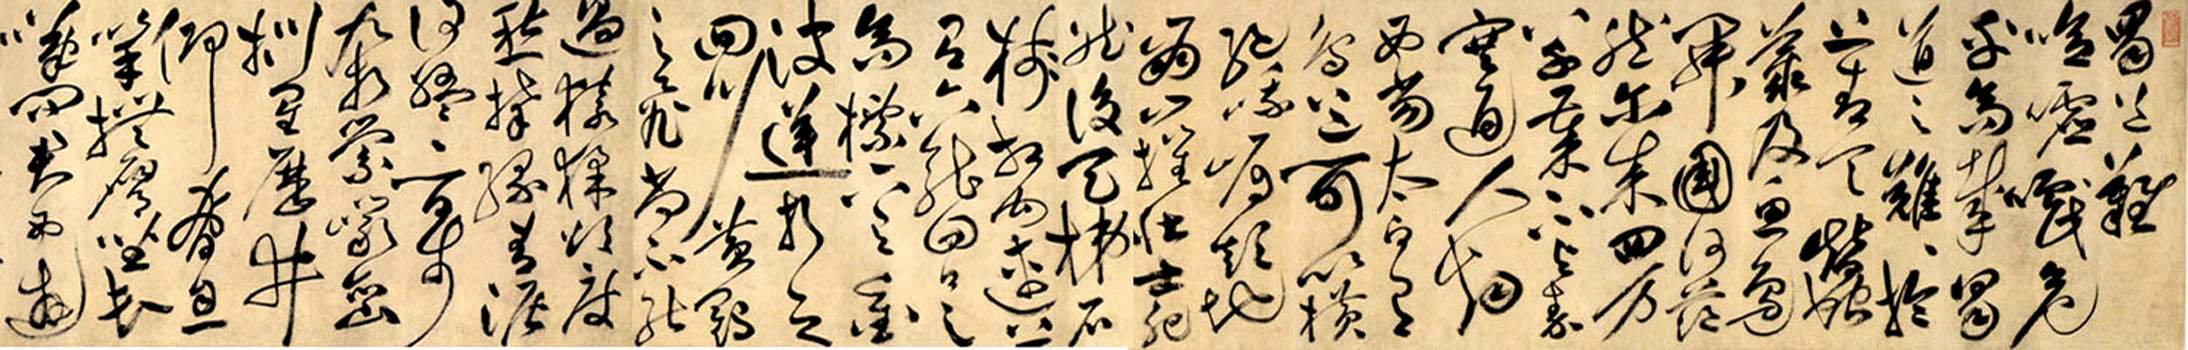 蜀道難
噫嘘嚱危
乎高哉蜀
道之難難於
上青天蠶
叢及魚鳧
開國何茫
然爾來四万
八千歲不與秦
塞通人烟
西當太白有
鳥道可以橫
絕峨嵋巔地
崩山摧壯士死
然後天梯石
棧相鉤連上
有六龍回日之
高標下有衝
波逆折之
回川黃鶴
之飛尚不能
過猿猱欲度
愁攀緣青泥
何盤盤百步
九折縈巖巒
捫星歷井
仰脅息
以手撫膺坐長
嘆問君西遊